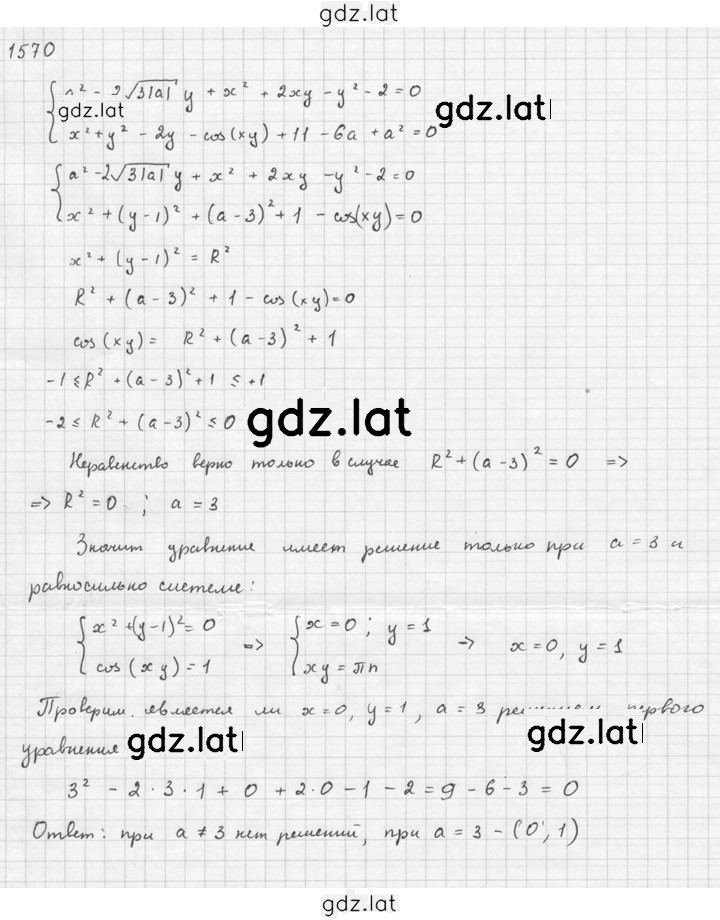 gdz.lat
1570
a² - 2√3|a| y + x² + 2xy - y² - 2 = 0
gdz.lat
gdz.lat
x² + y² - 2y - cos(xy) + 11 - 6a + a² = 0
a² - 2√3|a| y + x² + 2xy - y² - 2 = 0
x² + (y - 1)² + (a - 3)² + 1 - cos(xy) = 0
x² + (y - 1)² = R²
R² + (a - 3)² + 1 - cos(xy) = 0
cos(xy) = R² + (a - 3)² + 1
-1 ≤ R² + (a - 3)² + 1 ≤ +1
-2 ≤ R² + (a - 3)² ≤ 0
gdz.lat
Неравенство верно только в случае R² + (a - 3)² = 0 =>
=> R² = 0 ; a = 3
Значит уравнение имеет решение только при a = 3 и
равносильно системе:
x² + (y - 1)² = 0 => x = 0; y = 1
cos(xy) = 1 xy = πn -> x = 0, y = 1
Проверим является ли x = 0, y = 1, a = 3 решением первого
уравнения gdz.lat gdz.lat
3² - 2·3·1 + 0 + 2·0 - 1 - 2 = 9 - 6 - 3 = 0
Ответ: при a ≠ 3 нет решений, при a = 3 - (0; 1)
gdz.lat